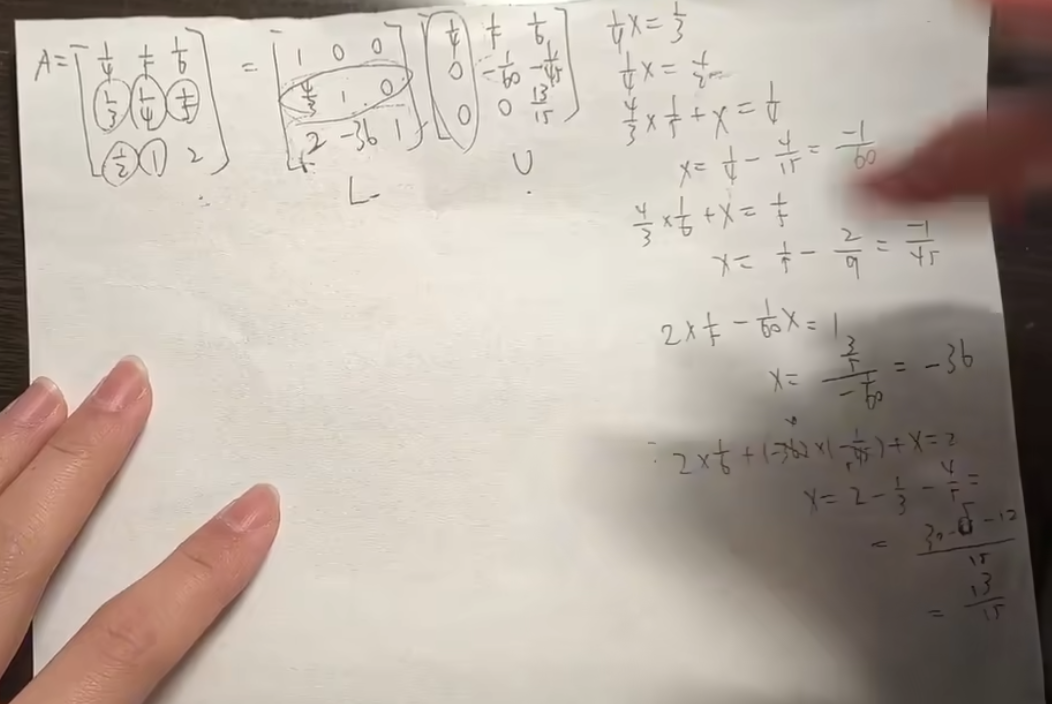 A = [ 1/4 1/5 1/6 ] = [ 1 0 0 ] [ 1/4 1/5 1/6 ]
[ 1/3 1/4 1/5 ] [ 4/3 1 0 ] [ 0 -1/60 -1/45 ]
[ 1/2 1 2 ] [ 2 -36 1 ] [ 0 0 13/15 ]
L U
1/4 x = 1/3
1/4 x = 1/2
4/3 × 1/5 + x = 1/4
x = 1/4 - 4/15 = -1/60
4/3 × 1/6 + x = 1/5
x = 1/5 - 2/9 = -1/45
2 × 1/5 - 1/60 x = 1
x = (3/5)/(-1/60) = -36
2 × 1/6 + (-36) × (-1/45) + x = 2
x = 2 - 1/3 - 4/5 =
= (30-5-12)/15
= 13/15